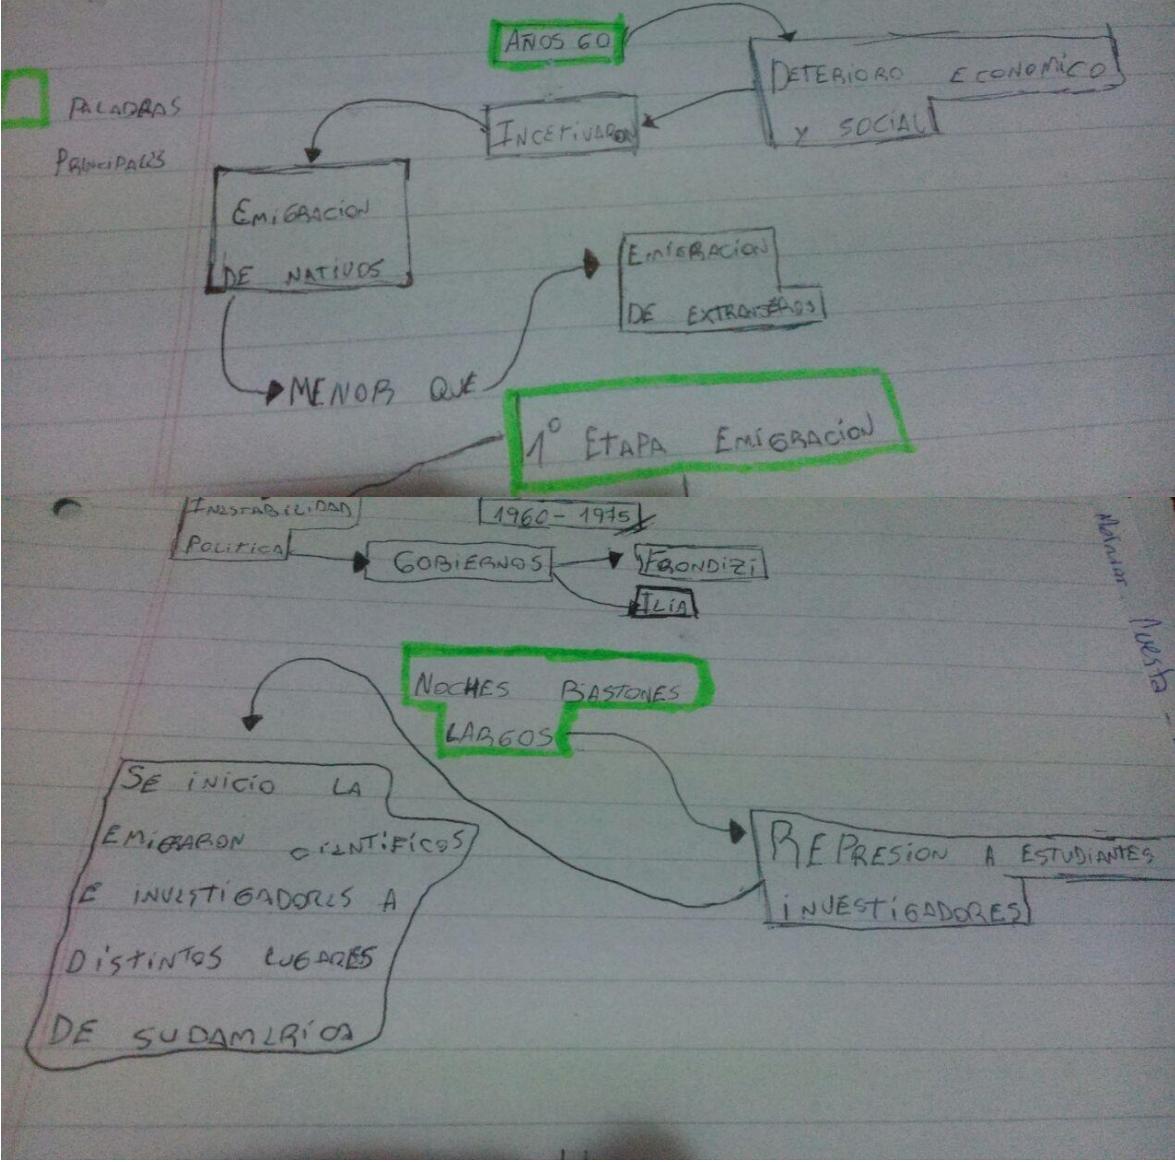 AÑOS 60
DETERIORO ECONOMICO
Y SOCIAL
PALABRAS
PRINCIPALES
INCETIVARON
EMIGRACION
DE NATIVOS
EMIGRACION
DE EXTRANJEROS
MENOR QUE
1º ETAPA EMIGRACION
INESTABILIDAD
POLITICA
1960-1975
GOBIERNOS
FRONDIZI
ILIA
NOCHES BASTONES
LARGOS
SE INICIO LA
EMIGRARON CIENTIFICOS
E INVESTIGADORES A
DISTINTOS LUGARES
DE SUDAMERICA
REPRESION A ESTUDIANTES
INVESTIGADORES